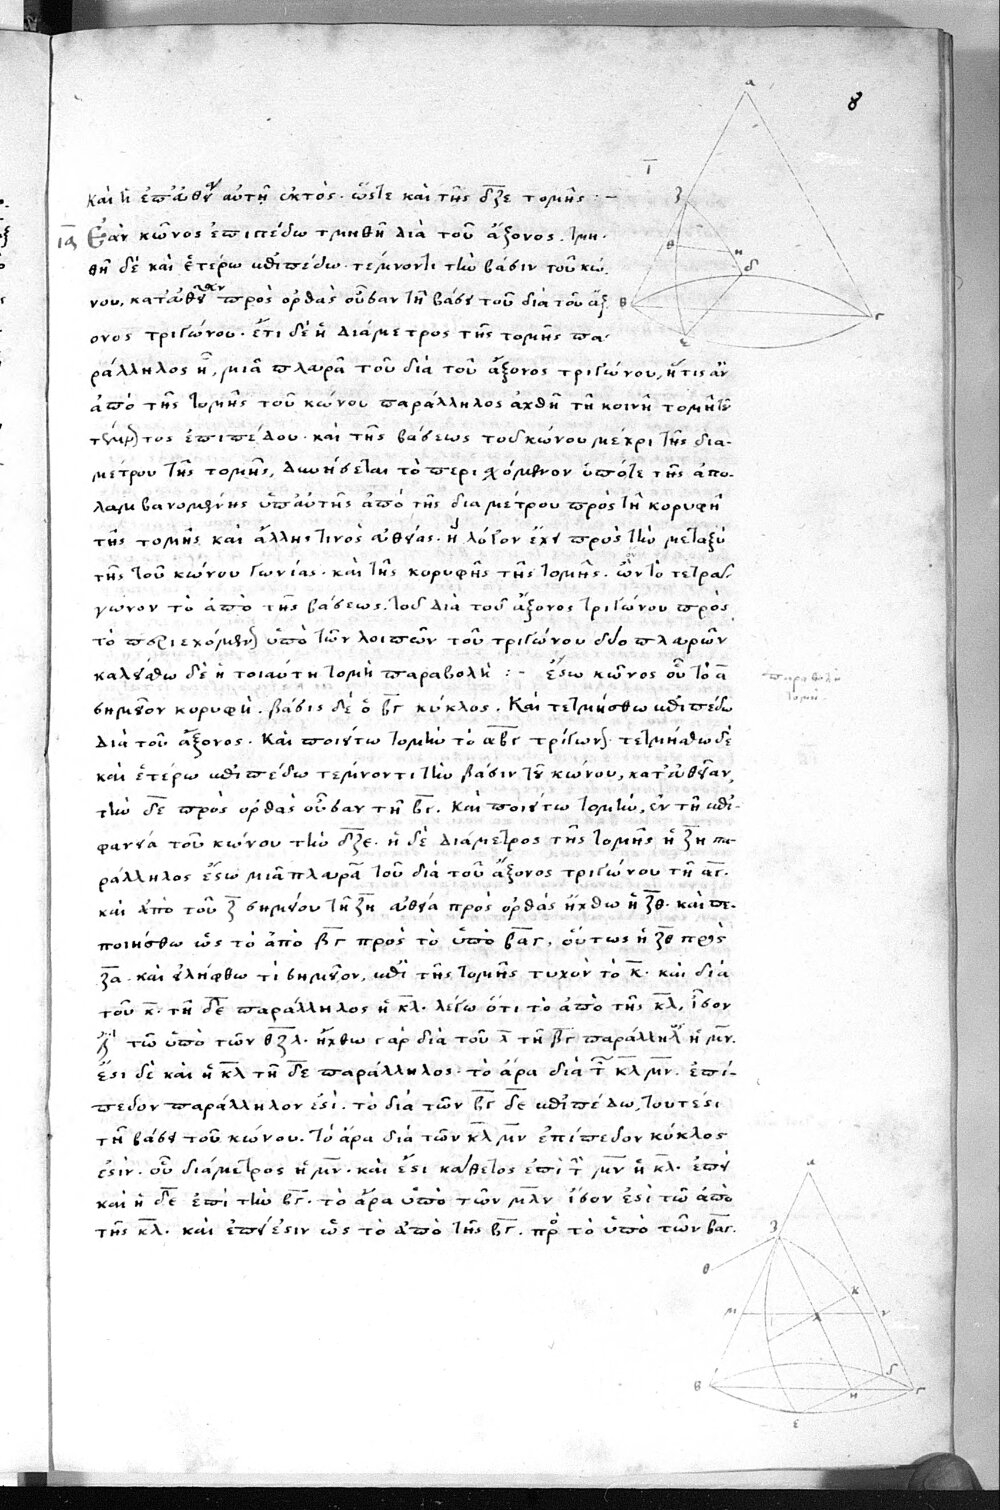 8
καὶ ἡ ἐπ' εὐθείας αὐτῇ ἐκτὸς· ὥστε καὶ τῆς δζε τομῆς :-
ια Ἐὰν κῶνος ἐπιπέδω τμηθῆ διὰ τοῦ ἄξονος. τμη-
θῆ δὲ καὶ ἑτέρω ἐπιπέδω· τέμνοντι τὴν βάσιν τοῦ κώ-
νου, κατ' εὐθεῖαν πρὸς ὀρθὰς οὖσαν τῆ βάσει τοῦ διὰ τοῦ ἄξ-
ονος τριγώνου· ἔτι δὲ ἡ διάμετρος τῆς τομῆς πα-
ράλληλος ἦ, μιᾶ πλευρᾶ τοῦ διὰ τοῦ ἄξονος τριγώνου, ἥτις ἂν
ἀπὸ τῆς τομῆς τοῦ κώνου παράλληλος ἀχθῆ τῆ κοινῆ τομῆ τοῦ
τέμνοντος ἐπιπέδου· καὶ τῆς βάσεως τοῦ κώνου μέχρι τῆς δια-
μέτρου τῆς τομῆς, δυνήσεται τὸ περιεχόμενον ὑπό τε τῆς ἀπο-
λαμβανομένης ὑπ' αὐτῆς ἀπὸ τῆς διαμέτρου πρὸς τῆ κορυφῆ
τῆς τομῆς καὶ ἄλλης τινὸς εὐθείας· ἣ λόγον ἔχει πρὸς τὴν μεταξὺ
τῆς τοῦ κώνου γωνίας· καὶ τῆς κορυφῆς τῆς τομῆς. ὃν τὸ τετρά-
γωνον τὸ ἀπὸ τῆς βάσεως. τοῦ διὰ τοῦ ἄξονος τριγώνου πρὸς
τὸ περιεχόμενον ὑπὸ τῶν λοιπῶν τοῦ τριγώνου δύο πλευρῶν
καλείσθω δὲ ἡ τοιαύτη τομὴ παραβολή :- ἔστω κῶνος οὗ τὸ α
σημεῖον κορυφή. βάσις δὲ ὁ βγ κύκλος. Καὶ τετμήσθω ἐπιπέδω
διὰ τοῦ ἄξονος. Καὶ ποιείτω τομὴν τὸ αβγ τρίγωνον· τετμήσθω δὲ
καὶ ἑτέρω ἐπιπέδω τέμνοντι τὴν βάσιν τοῦ κώνου, κατ' εὐθεῖαν,
τὴν δε πρὸς ὀρθὰς οὖσαν τῆ βγ. Καὶ ποιείτω τομὴν, ἐν τῆ ἐπι-
φανεία τοῦ κώνου τὴν δζε· ἡ δὲ διάμετρος τῆς τομῆς ἡ ζη πα-
ράλληλος ἔστω μιᾶ πλευρᾶ τοῦ διὰ τοῦ ἄξονος τριγώνου τῆ αγ.
καὶ ἀπὸ τοῦ ζ σημείου τῆ ζη εὐθεία πρὸς ὀρθὰς ἤχθω ἡ ζθ. καὶ πε-
ποιήσθω ὡς τὸ ἀπὸ βγ πρὸς τὸ ὑπὸ βαγ, οὕτως ἡ ζθ πρὸς
ζα. καὶ εἰλήφθω τι σημεῖον, ἐπὶ τῆς τομῆς τυχὸν τὸ κ. καὶ διὰ
τοῦ κ. τῆ δε παράλληλος ἡ κλ. λέγω ὅτι τὸ ἀπὸ τῆς κλ, ἴσον
ἐστὶ τῶ ὑπὸ τῶν θζλ. ἤχθω γὰρ διὰ τοῦ λ τῆ βγ παράλληλος ἡ μν.
ἔστι δὲ καὶ ἡ κλ τῆ δε παράλληλος. τὸ ἄρα διὰ τῶν κλ μν. ἐπί-
πεδον παράλληλόν ἐστι. τὸ διὰ τῶν βγ δε ἐπιπέδω, τουτέστι
τῆ βάσει τοῦ κώνου. τὸ ἄρα διὰ τῶν κλ μν ἐπίπεδον κύκλος
ἐστὶν. οὗ διάμετρος ἡ μν. καὶ ἔστι κάθετος ἐπὶ τὴν μν ἡ κλ. ἐπεὶ
καὶ ἡ δε ἐπὶ τὴν βγ. τὸ ἄρα ὑπὸ τῶν μλν ἴσον ἐστὶ τῶ ἀπὸ
τῆς κλ. καὶ ἐπεί ἐστιν ὡς τὸ ἀπὸ τῆς βγ. πρὸς τὸ ὑπὸ τῶν βαγ.
παραβολὴ
τομή
ι
α
ζ
θ
η
δ
β
γ
ε
α
ζ
θ
κ
μ
λ
ν
δ
β
η
γ
ε